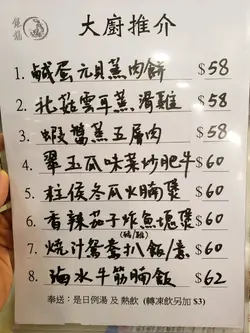 大廚推介
1. 鹹蛋元貝蒸肉餅 $58
2. 北菇雲耳蒸滑雞 $58
3. 蝦醬蒸五层肉 $58
4. 翠玉瓜味菜炒肥牛 $60
5. 柱侯冬瓜火腩煲 $60
6. 香辣茄子炸魚塊煲 $60
(豬/雞)
7. 燒汁鴛鴦扒飯/意 $60
8. 滷水牛筋腩飯 $62
奉送：是日例湯 及 熱飲 (轉凍飲另加 $3)